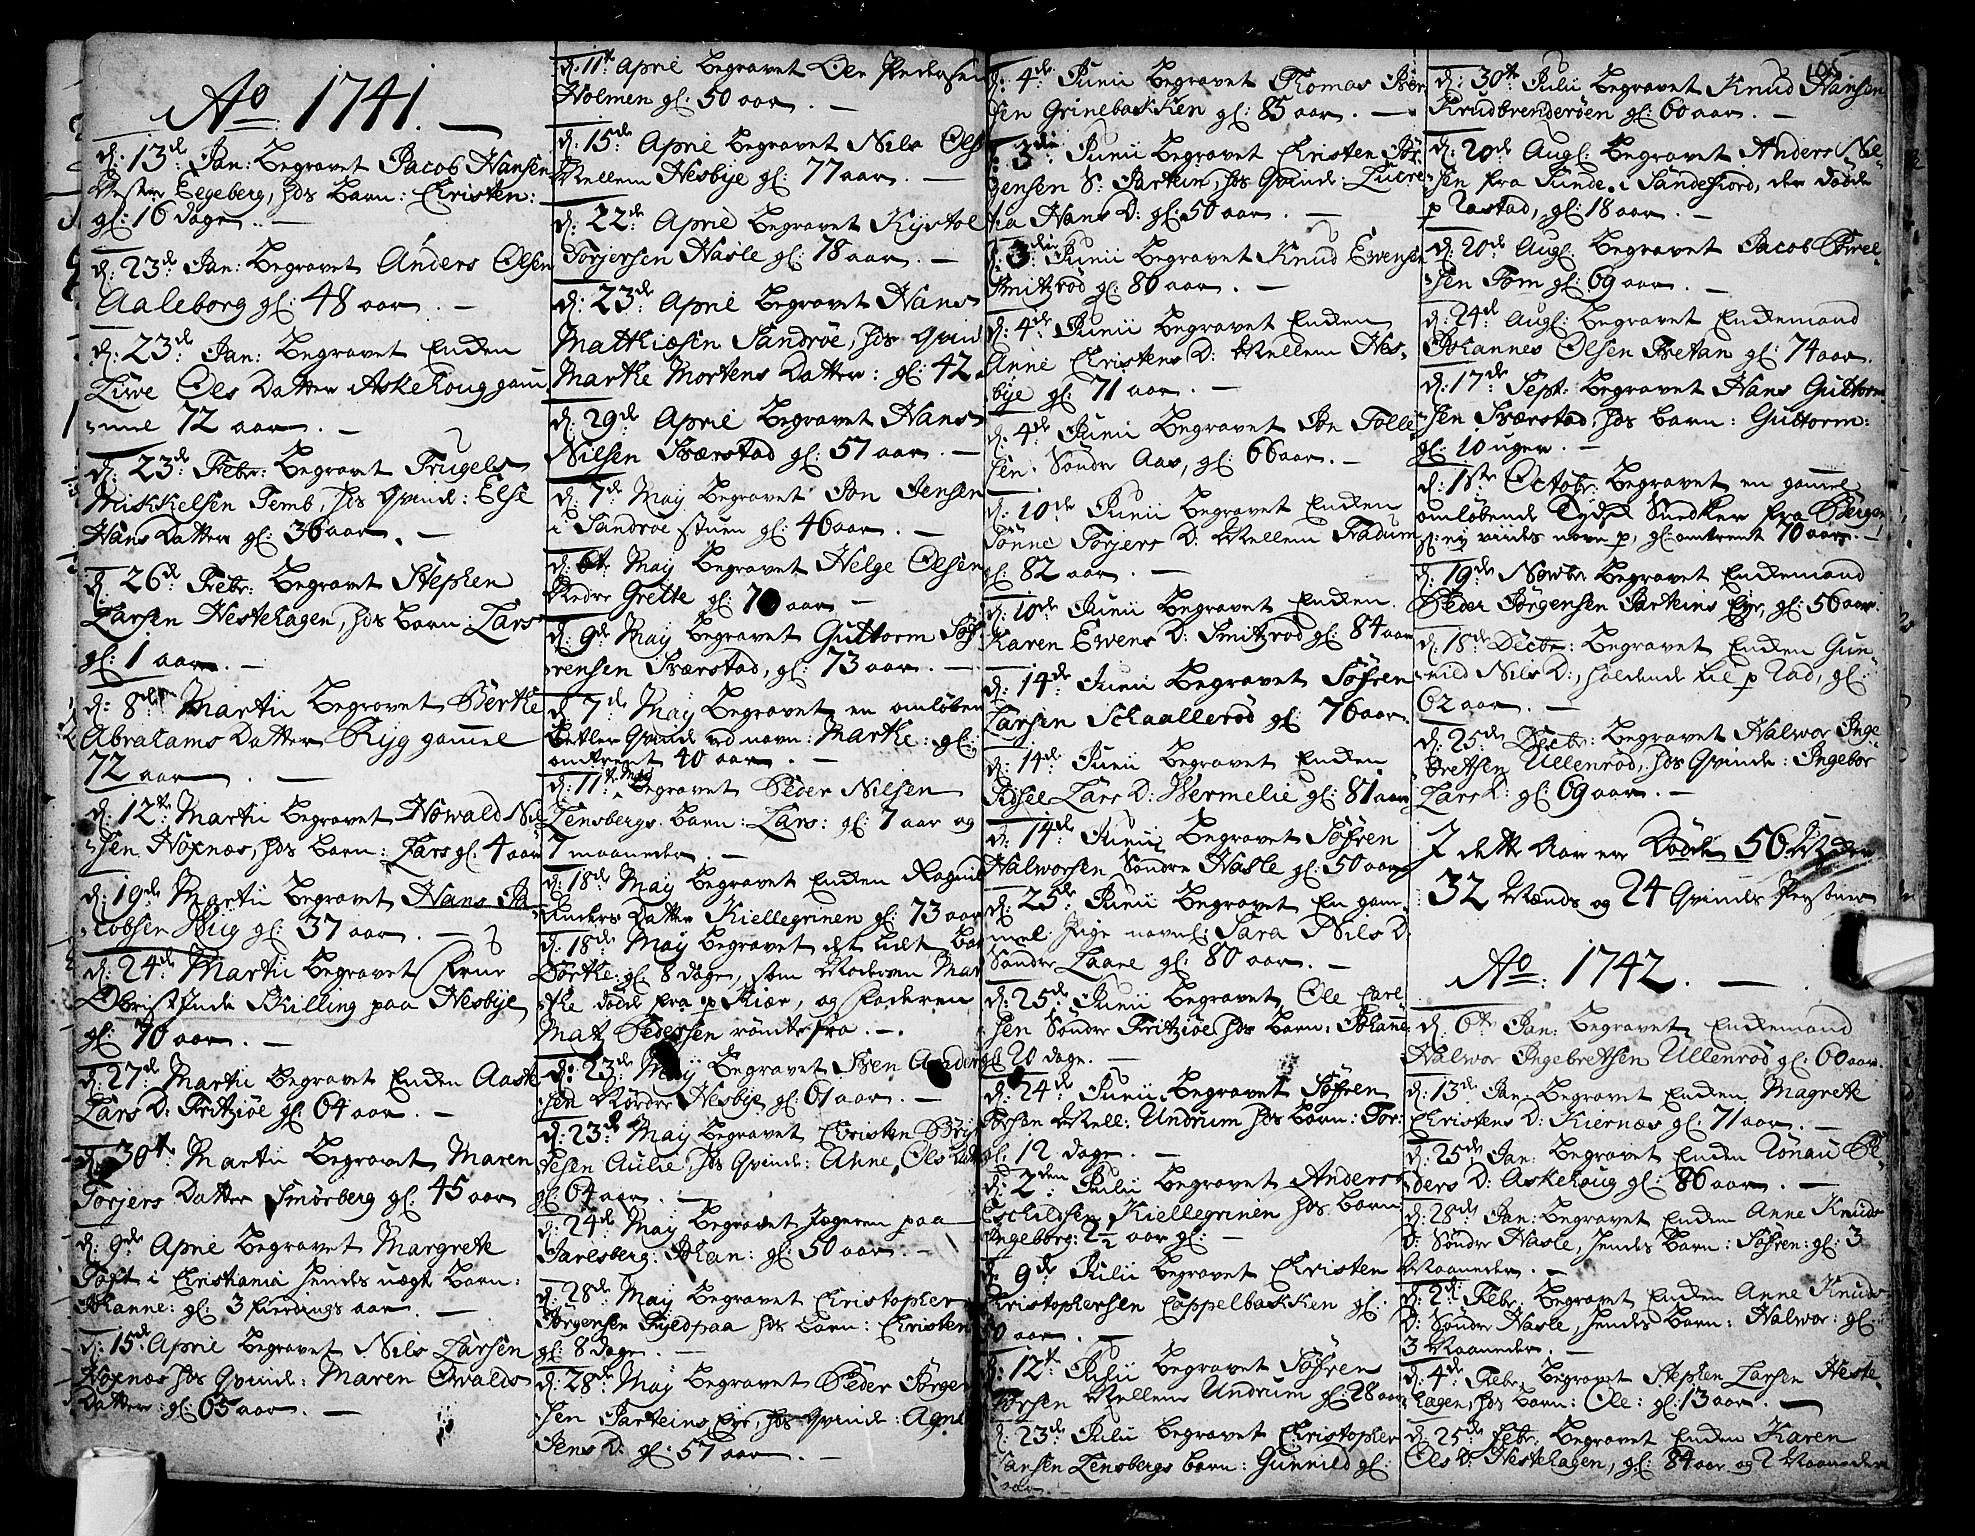 Ao 1741.
d: 13de Jan: Begravet Jacob Hansen
Eegeberg, hds barn: Christen:
gl: 16 dage.
d: 23de Jan: Begravet Anders Olsen
Aaleborg gl: 48 aar.
d: 23de Jan: Begravet Enken
Live Ols Datter Askehoug gam¬
mel 72 aar.
d: 23de Febr: Begravt Trugels
Mikkelsen Temb, hds Qvinde: Else
Hans Datter gl: 36 aar.
d: 26de Febr: Begravt Stephen
Larsen Hestehagen, hds barn: Lars
gl: 1 aar.
d: 8de Martii Begravet Berthe
Abrahams Datter Ryg gamel
72 aar.
d: 12te Martii Begravet Howald Nil
sen Hoxnæs, hds barn: Lars gl: 4 aar
d: 19de Martii Begravet Hans Ja
cobsen gl: 37 aar.
d: 24de Martii Begravet Frue
Obrist Skilling paa Nesbye
gl: 70 aar.
d: 27de Martii Begravet Enken Aase
Lars D: Fritziöe gl: 64 aar.
d: 30te Martii Begravet Maren
Torjers Datter Smörberg gl: 45 aar
d: 9de April Begravet Margrete
Toft i Christiania hendes uægte barn:
Johanne: gl: 3 fierdings aar.
d: 15de April Begravet Nils Larsen
Hoxnæs hds Qvinde: Maren Owalds
Datter: gl: 65 aar.
d: 11te April Begravet Ole Pedersen
Holmen gl: 50 aar.
d: 15de April Begravet Nils Ols
Mellem Nesbye gl: 77 aar.
d: 22de April Begravet Kystol
Torjersen Hasle gl: 78 aar.
d: 23de April Begravet Hans
Mathiesen Sandröe, hds Qvind
Marthe Mortens Datter: gl: 42
d: 29de April Begravet Hans
Nilsen Sværstad gl: 57 aar.
d: 7de May Begravet Jon Jensen
i Sandröe stuen gl: 46 aar.
d: 6te May Begravet Helge Olsen
Nedre Grette gl: 70 aar
d: 9de May Begravet Guttorm Söf
rensen Sværstad, gl: 73 aar.
d: 7de May Begravet en omlöben
betler Qvinde ved navn: Marthe: gl:
omtrent 40 aar.
d: 11te May Begravet Peder Nilsen
Lensbergs barn: Lars: gl: 7 aar og
7 maaneder.
d: 18de May Begravet Enken Ragnil
Anders Datter Kiellegrinen gl: 73 aar
d: 18de May Begravet det lidt bar
Börthe: gl: 8 dage, som Moderen Mar
the döde fra p Kiær, og faderen
Matz Pedersen römte fra.
d: 23de May Begravet Sven Ander
sen Nordre Nesbye gl: 61 aar.
d: 23de May Begravet Christen Börg
esen Aulie, hds Qvinde: Anne Ols Dat
gl: 64 aar.
d: 24de May Begravet Jægeren paa
Jarlsberg: Johan: gl: 50 aar.
d: 28de May Begravet Christopher
Jörgensen hds barn: Christen
gl: 8 dage.
d: 28de May Begravet Peder Jörgen
sen Jarteins Eje, hds Qvinde: Agne
Jens D: gl: 57 aar.
105
d: 4de Junii Begravet Thomas Iver
sen Grinebakken gl: 85 aar.
d: 3die Junii Begravet Christen Jör
gensen S: Jartun, hds Qvinde: Lucre
tia Hans D: gl: 50 aar.
d: 3die Junii Begravet Knud Ewensen
Smitzröd gl: 80 aar.
d: 4de Junii Begravet Enken
Anne Christens D: Mellem Nes¬
bye gl: 71 aar.
d: 4de Junii Begravet Jon Tolle
sen Söndre Aas, gl: 66 aar.
d: 10de Junii Begravet Enken
Tönne Torjers D: Mellem Fadum
gl: 82 aar.
d: 10de Junii Begravet Enken
Karen Ewens D: Smitzröd gl: 84 aar
d: 14de Junii Begravet Söfren
Larsen Schaalleröd gl: 76 aar.
d: 14de Junii Begravet Enken
Sidsel Lars D: Wermelie gl: 81 aar
d: 14de Junii Begravet Söfren
Halworsen Söndre Hasle gl: 50 aar
d: 25de Junii Begravet En gam¬
mel Pige navnl: Sara Nils D:
Söndre Laane gl: 80 aar.
d: 25de Junii Begravet Ole Carl
sen Söndre Fritziöe hds barn: Johanne
gl 20 dage.
d: 24de Junii Begravet Söfren
Torsen Mell: Undrum hds barn: Tor:
gl: 12 dage.
d: 2den Julii Begravet Anders
Eschildsen Kiellegrinen hds barn
Ingeborg: 2½ aar gl:
d: 9de Julii Begravet Christen
Christophersen Cappelbakken gl:
50 aar.
d: 12te Julii Begravet Söfren
Torsen Mellem Undrum gl: 28 aar
d: 23de Julii Begravet Christopher
Hansen Lensbergs barn: Gunnild gl:
aar.
d: 30te Julii Begravet Knud Hansen
Knudbrenderöen gl: 60 aar.
d: 20de Augl. Begravet Anders Nil¬
sen fra Sunde i Sandefiord, der döde
p Rastad, gl: 18 aar.
d: 20de Augl. Begravet Jacob Pövel¬
sen Tom gl: 69 aar.
d: 24de Augl: Begravet Enkemand
Johannes Olsen Fretan gl: 74 aar.
d: 17de Sept: Begravet Hans Guttorm
sen Sværstad, hds barn: Guttorm:
gl: 10 uger.
d: 18te Octobr: Begravet en gammel
omløbende Tydsk Snedker fra Bergen
ej vides navn p, gl: omtrent 70 aar.
d: 19de Novbr Begravet Enkemand
Peder Jörgensen Jarteins Eye, gl: 56 aar.
d: 18de Decbr: Begravet Enken Gun¬
nild Nils D:, holdende til p Rad, gl:
62 aar.
d: 25de Decbr: Begravet Halwor Inge¬
bretsen Ullenröd, hds Qvinde: Ingebor
Lars D: gl: 69 aar.
I dette Aar er Döde 56
32 Mænds og 24 Qvindes Personer
Ao: 1742.
d: 6te Jan: Begravet Enkemand
Halwor Ingebretsen Ullenröd gl: 60 aar.
d: 13de Jan: Begravet Enken Magrete
Christens D: Kiernæs gl: 71 aar.
d: 25de Jan: Begravet Enken Rönau Pe¬
ders D: Askehoug gl: 86 aar.
d: 28de Jan: Begravet Enken Anne Knuds
D: Söndre Hasle, hendes barn: Söfren: gl: 3
Maaneder.
d: 2de Febr: Begravet Enken Anne Knuds
D: Söndre Hasle, hendes barn: Halwor: gl:
3 Maaneder.
d: 4de Febr, Begravet Stephen Larsen Heste¬
hagen, hds barn: Ole: gl: 13 aar.
d: 25de Febr: Begravet Enken Karen
Ols D. Hestehagen, gl: 84 aar og 2 Maaneder